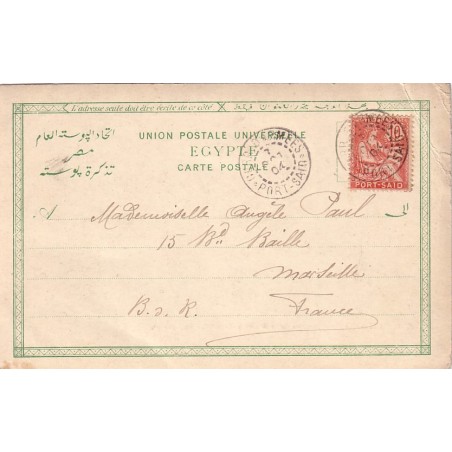 L'adresse seule doit être écrite de ce côté
اتحاد البوستة العام
مصر
تذكرة بوستة
UNION POSTALE UNIVERSELLE
EGYPTE
CARTE POSTALE
PORT-SAID
10
PORT-SAID
PORT-SAID
A
الى
Mademoiselle Angèle Paul
15 Bd Baille
Marseille
B. d. R.
France